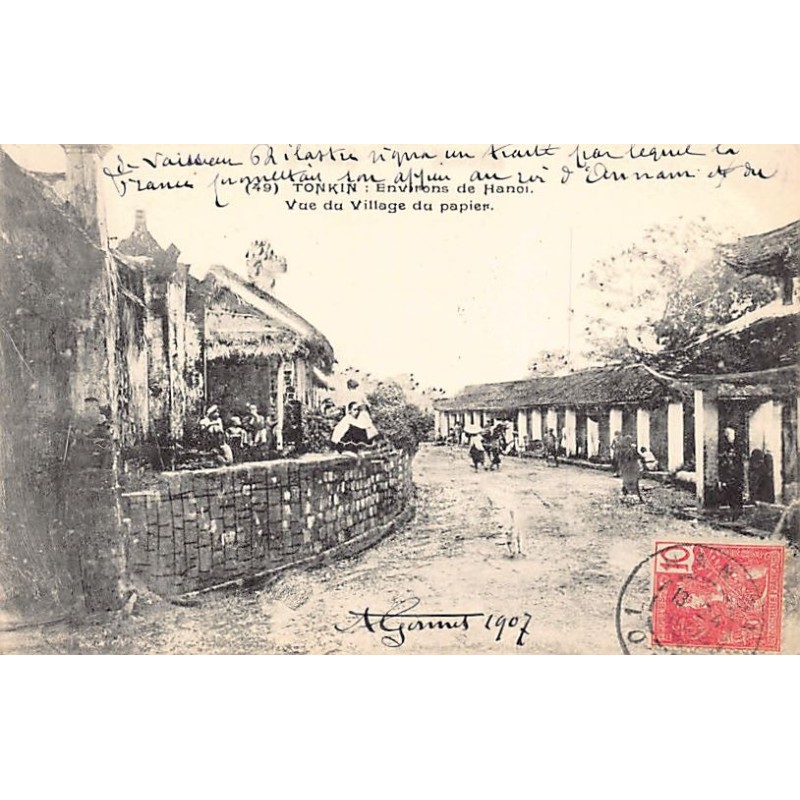 de Vaisseau Philastre signa un traité par lequel la
France promettait son appui au roi d'Annam et du
(49) TONKIN : Environs de Hanoï.
Vue du Village du papier.
1907
10
13